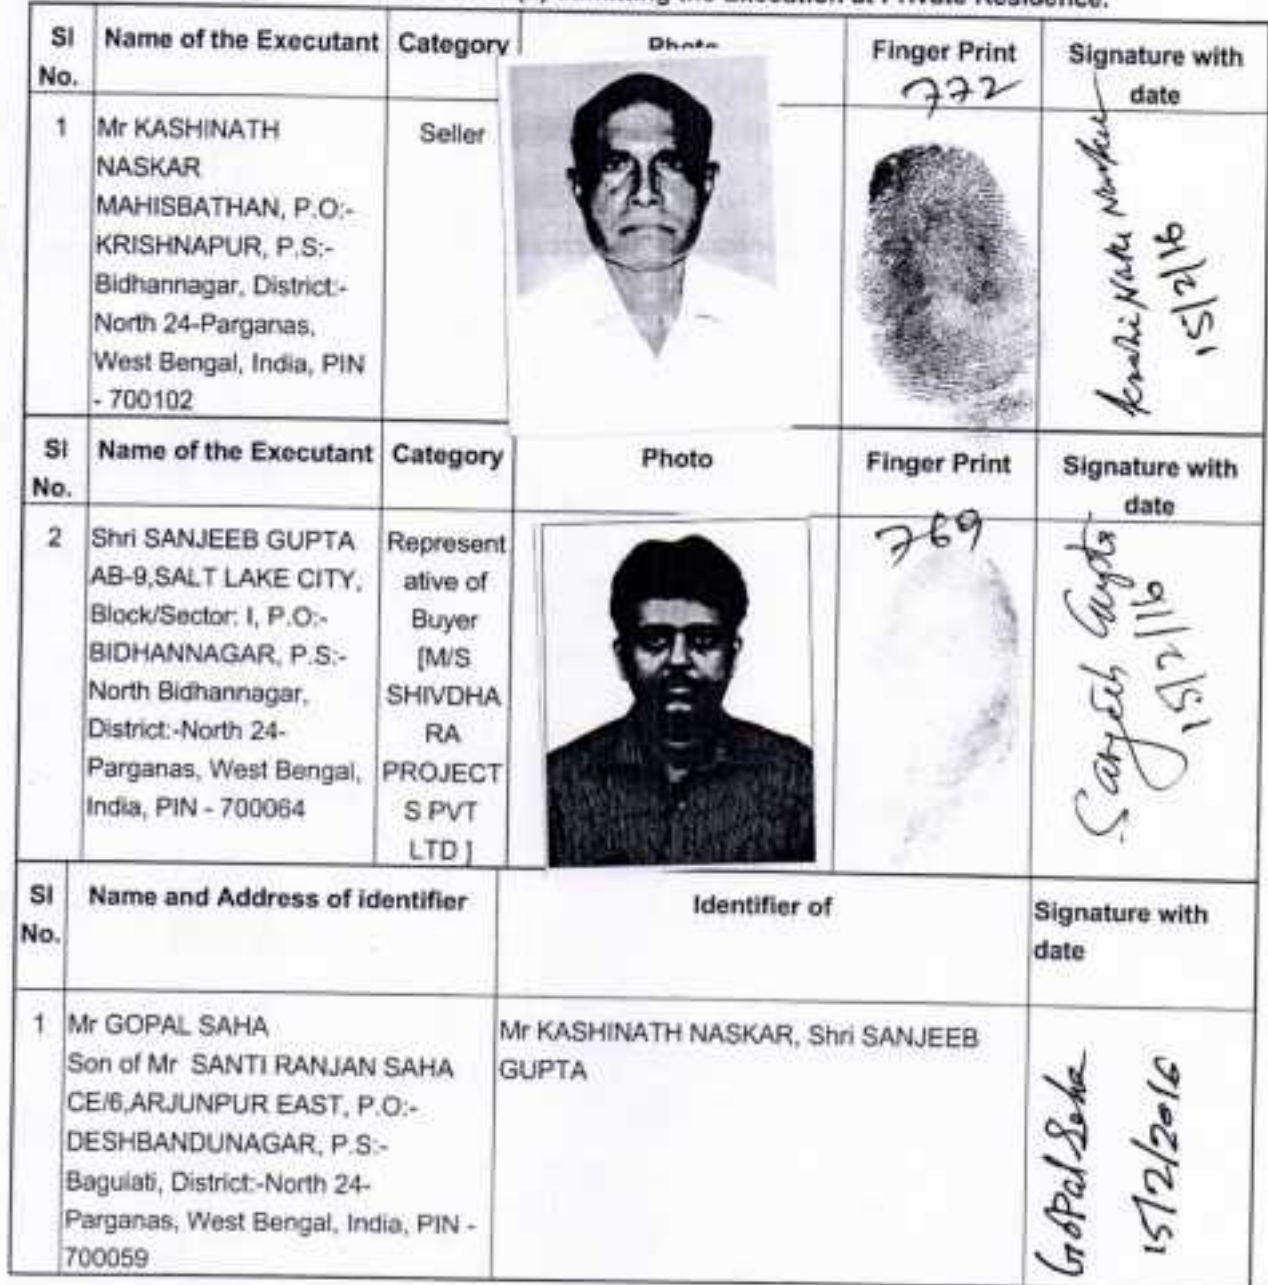 the Execution at Private Residence.
Sl No. Name of the Executant Category Photo Finger Print Signature with date
772
1 Mr KASHINATH
NASKAR
MAHISBATHAN, P.O:-
KRISHNAPUR, P.S:-
Bidhannagar, District:-
North 24-Parganas,
West Bengal, India, PIN
- 700102
Seller
Kashi Nath Naskar
15/2/16
Sl No. Name of the Executant Category Photo Finger Print Signature with date
769
2 Shri SANJEEB GUPTA
AB-9,SALT LAKE CITY,
Block/Sector: I, P.O:-
BIDHANNAGAR, P.S:-
North Bidhannagar,
District:-North 24-
Parganas, West Bengal,
India, PIN - 700064
Represent
ative of
Buyer
[M/S
SHIVDHA
RA
PROJECT
S PVT
LTD ]
Sanjeeb Gupta
15/2/16
Sl No. Name and Address of identifier Identifier of Signature with date
1 Mr GOPAL SAHA
Son of Mr SANTI RANJAN SAHA
CE/6,ARJUNPUR EAST, P.O:-
DESHBANDUNAGAR, P.S:-
Baguiati, District:-North 24-
Parganas, West Bengal, India, PIN -
700059
Mr KASHINATH NASKAR, Shri SANJEEB
GUPTA
GoPal Saha
15/2/2016